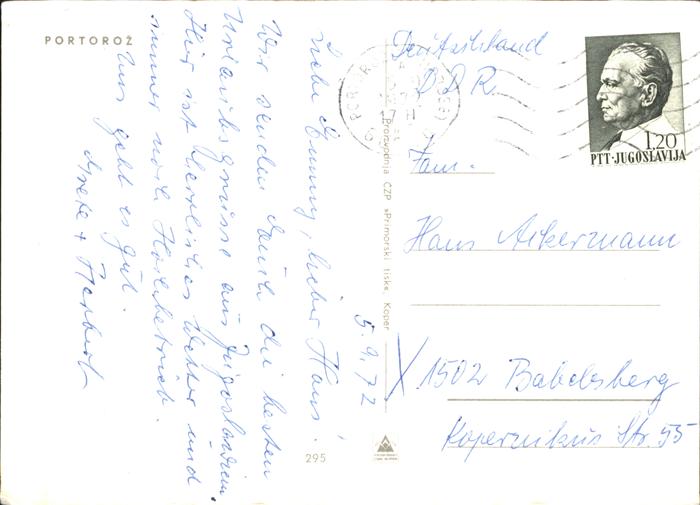 PORTOROŽ
Liebe Emmy, lieber Hans!
Wir senden Euch die besten
Urlaubsgrüsse aus Jugoslawien.
Hier ist herrliches Wetter und
immer noch Hochbetrieb.
Uns geht es gut.
+ Herbert
5.9.72
295
Proizvodnja ČZP »Primorski tisk«, Koper
PTT-JUGOSLAVIJA
1.20
Deutschland
DDR
Fam.
Hans Ackermann
1502 Babelsberg
Kopernikus Str. 55